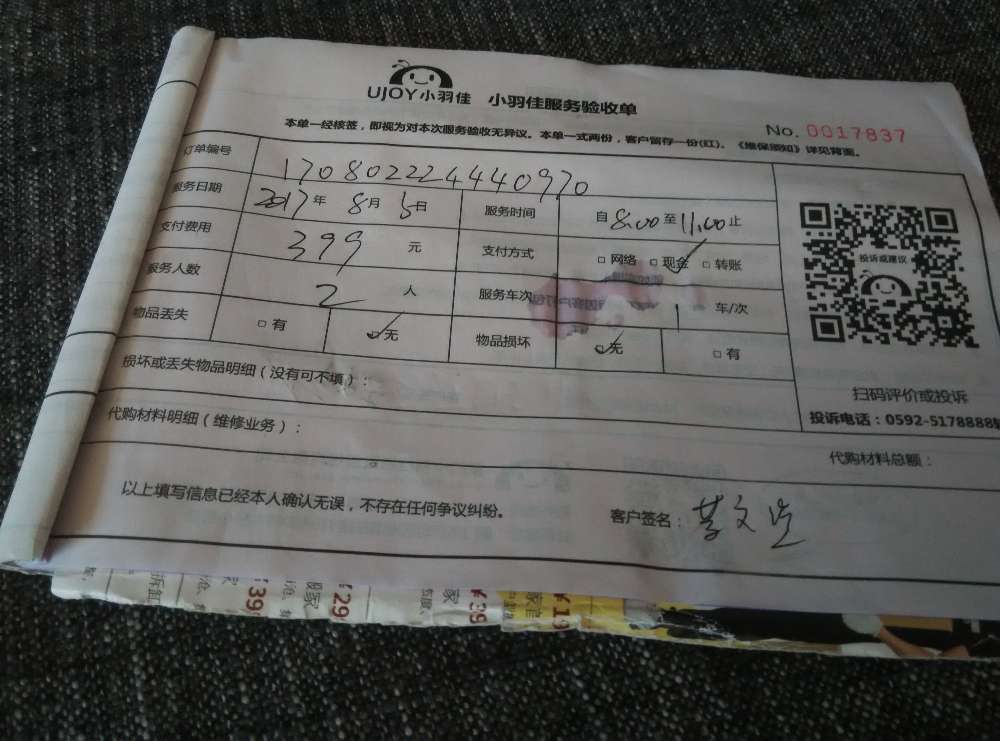 UJOY小羽佳 小羽佳服务验收单
No. 0017837
本单一经核签，即视为对本次服务验收无异议。本单一式两份，客户留存一份(红)。《维保须知》详见背面。
订单编号 170802224440970
服务日期 2017年 8月 5日 服务时间 自8:00至11:00止
支付费用 399 元 支付方式 □网络 □现金 □转账
服务人数 2 人 服务车次 1 车/次
物品丢失 □有 □无 物品损坏 □无 □有
投诉或建议
损坏或丢失物品明细（没有可不填）：
扫码评价或投诉
投诉电话：0592-5178888
代购材料明细（维修业务）：
代购材料总额：
以上填写信息已经本人确认无误，不存在任何争议纠纷。
客户签名：